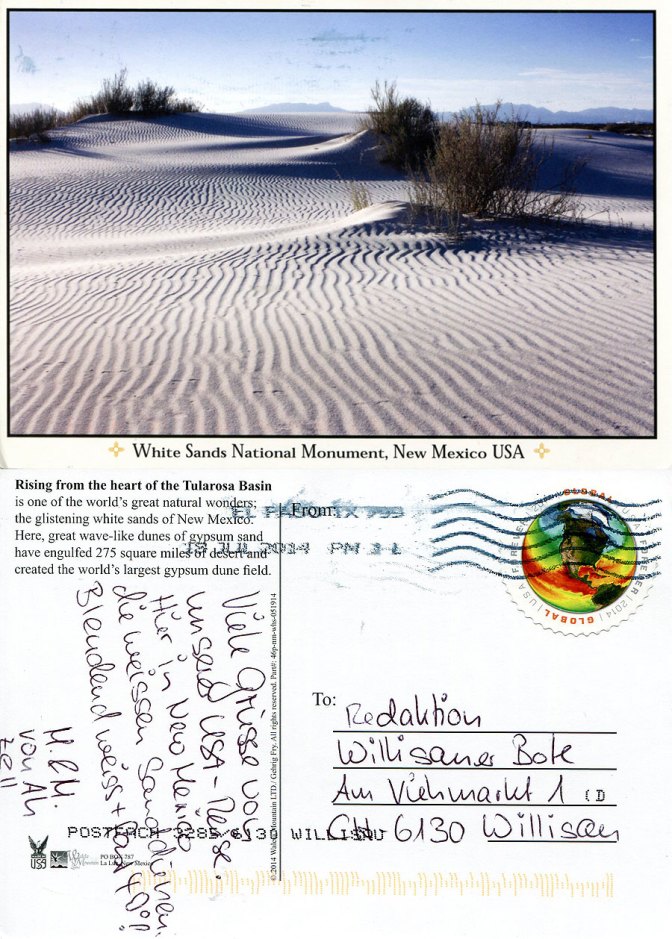 White Sands National Monument, New Mexico USA
Rising from the heart of the Tularosa Basin
is one of the world's great natural wonders:
the glistening white sands of New Mexico.
Here, great wave-like dunes of gypsum sand
have engulfed 275 square miles of desert and
created the world's largest gypsum dune field.
From:
EL PASO TX 799
18 JUL 2014 PM 1 L
GLOBAL
GLOBAL
Viele Grüsse von
unserer USA-Reise.
Hier in New Mexico
die weissen Sanddünen.
Blendend weiss +
M.+M.
von Ah
Zell
©2014 Mountain LTD./ Gehrig Fry. All rights reserved. Part#: 46p-nm-whs-051914
To:
Redaktion
Willisauer Bote
Am Viehmarkt 1
CH 6130 Willisau
POSTFACH 3285 6130 WILLISAU
USS
PO BOX 787
La Luz, New Mexico